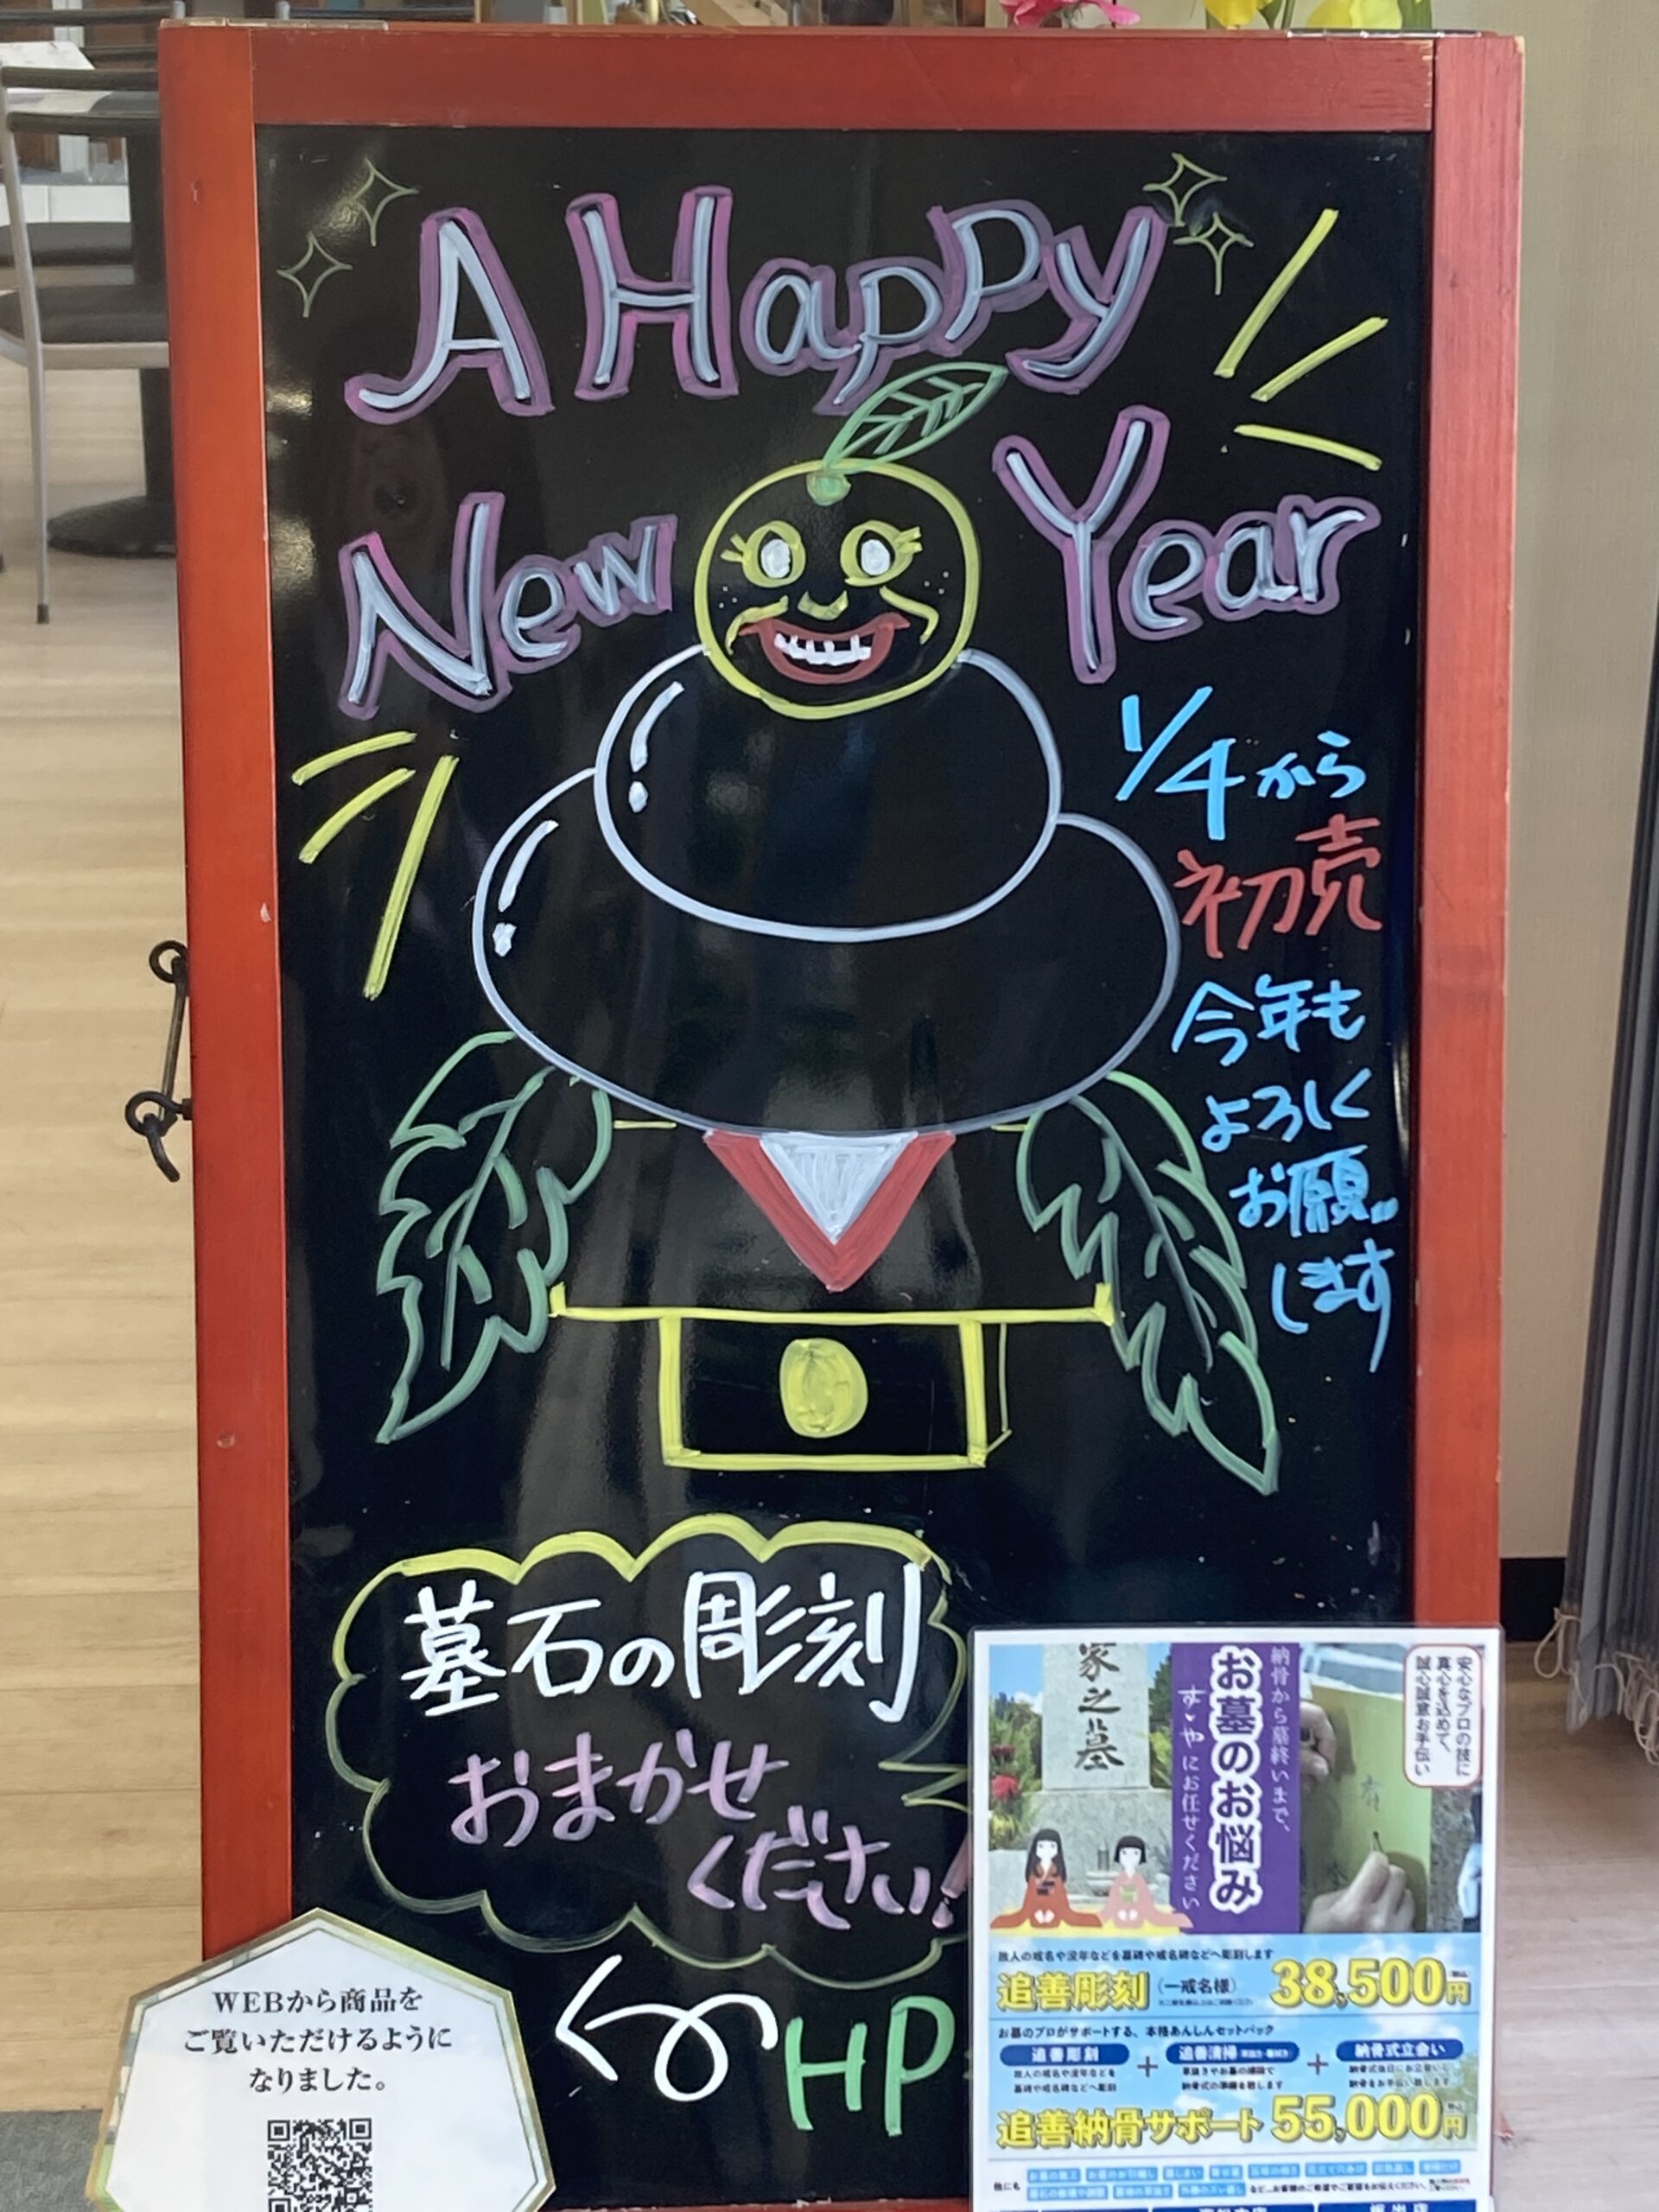 A Happy
New Year
1/4から
初売
今年も
よろしく
お願い
します
墓石の彫刻
おまかせ
ください!
HP
WEBから商品を
ご覧いただけるように
なりました。
家之墓
納骨から墓終いまで、
お墓のお悩み
にお任せください
安心なプロの技に
真心を込めて、
誠心誠意お手伝い
故人の戒名や没年などを墓碑や戒名碑などへ彫刻します
追善彫刻 (一戒名様) 38,500円
お墓のプロがサポートする、本格あんしんセットパック
追善彫刻 + 追善清掃 + 納骨式立会い
故人の戒名や没年などを
墓碑や戒名碑などへ彫刻
追善納骨サポート 55,000円
他にも